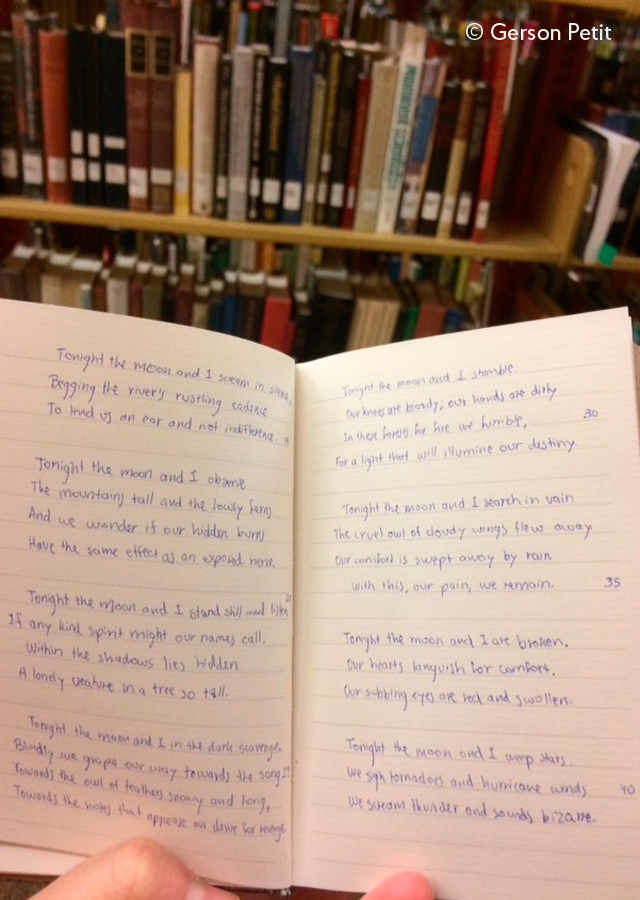 © Gerson Petit
Tonight the moon and I scream in silence,
Begging the river's rustling cadence
To lend us an ear and not indifference 15
Tonight the moon and I observe
The mountains tall and the lowly ferns
And we wonder if our hidden burns
Have the same effect as an exposed nerve.
20
Tonight the moon and I stand still and listen
If any kind spirit might our names call.
Within the shadows lies hidden
A lonely creature in a tree so tall.
Tonight the moon and I in the dark scavenge.
Blindly we grope our way towards the song 25
Towards the owl of feathers snowy and long,
Towards the notes that appease our desire for revenge
Tonight the moon and I stumble
Our knees are bloody, our hands are dirty
In these forests for fire we fumble, 30
For a light that will illumine our destiny.
Tonight the moon and I search in vain
The cruel owl of cloudy wings flew away
Our comfort is swept away by rain
With this, our pain, we remain. 35
Tonight the moon and I are broken.
Our hearts languish for comfort.
Our sobbing eyes are red and swollen.
Tonight the moon and I weep stars.
We sigh tornadoes and hurricane winds 40
We scream thunder and sounds bizarre.